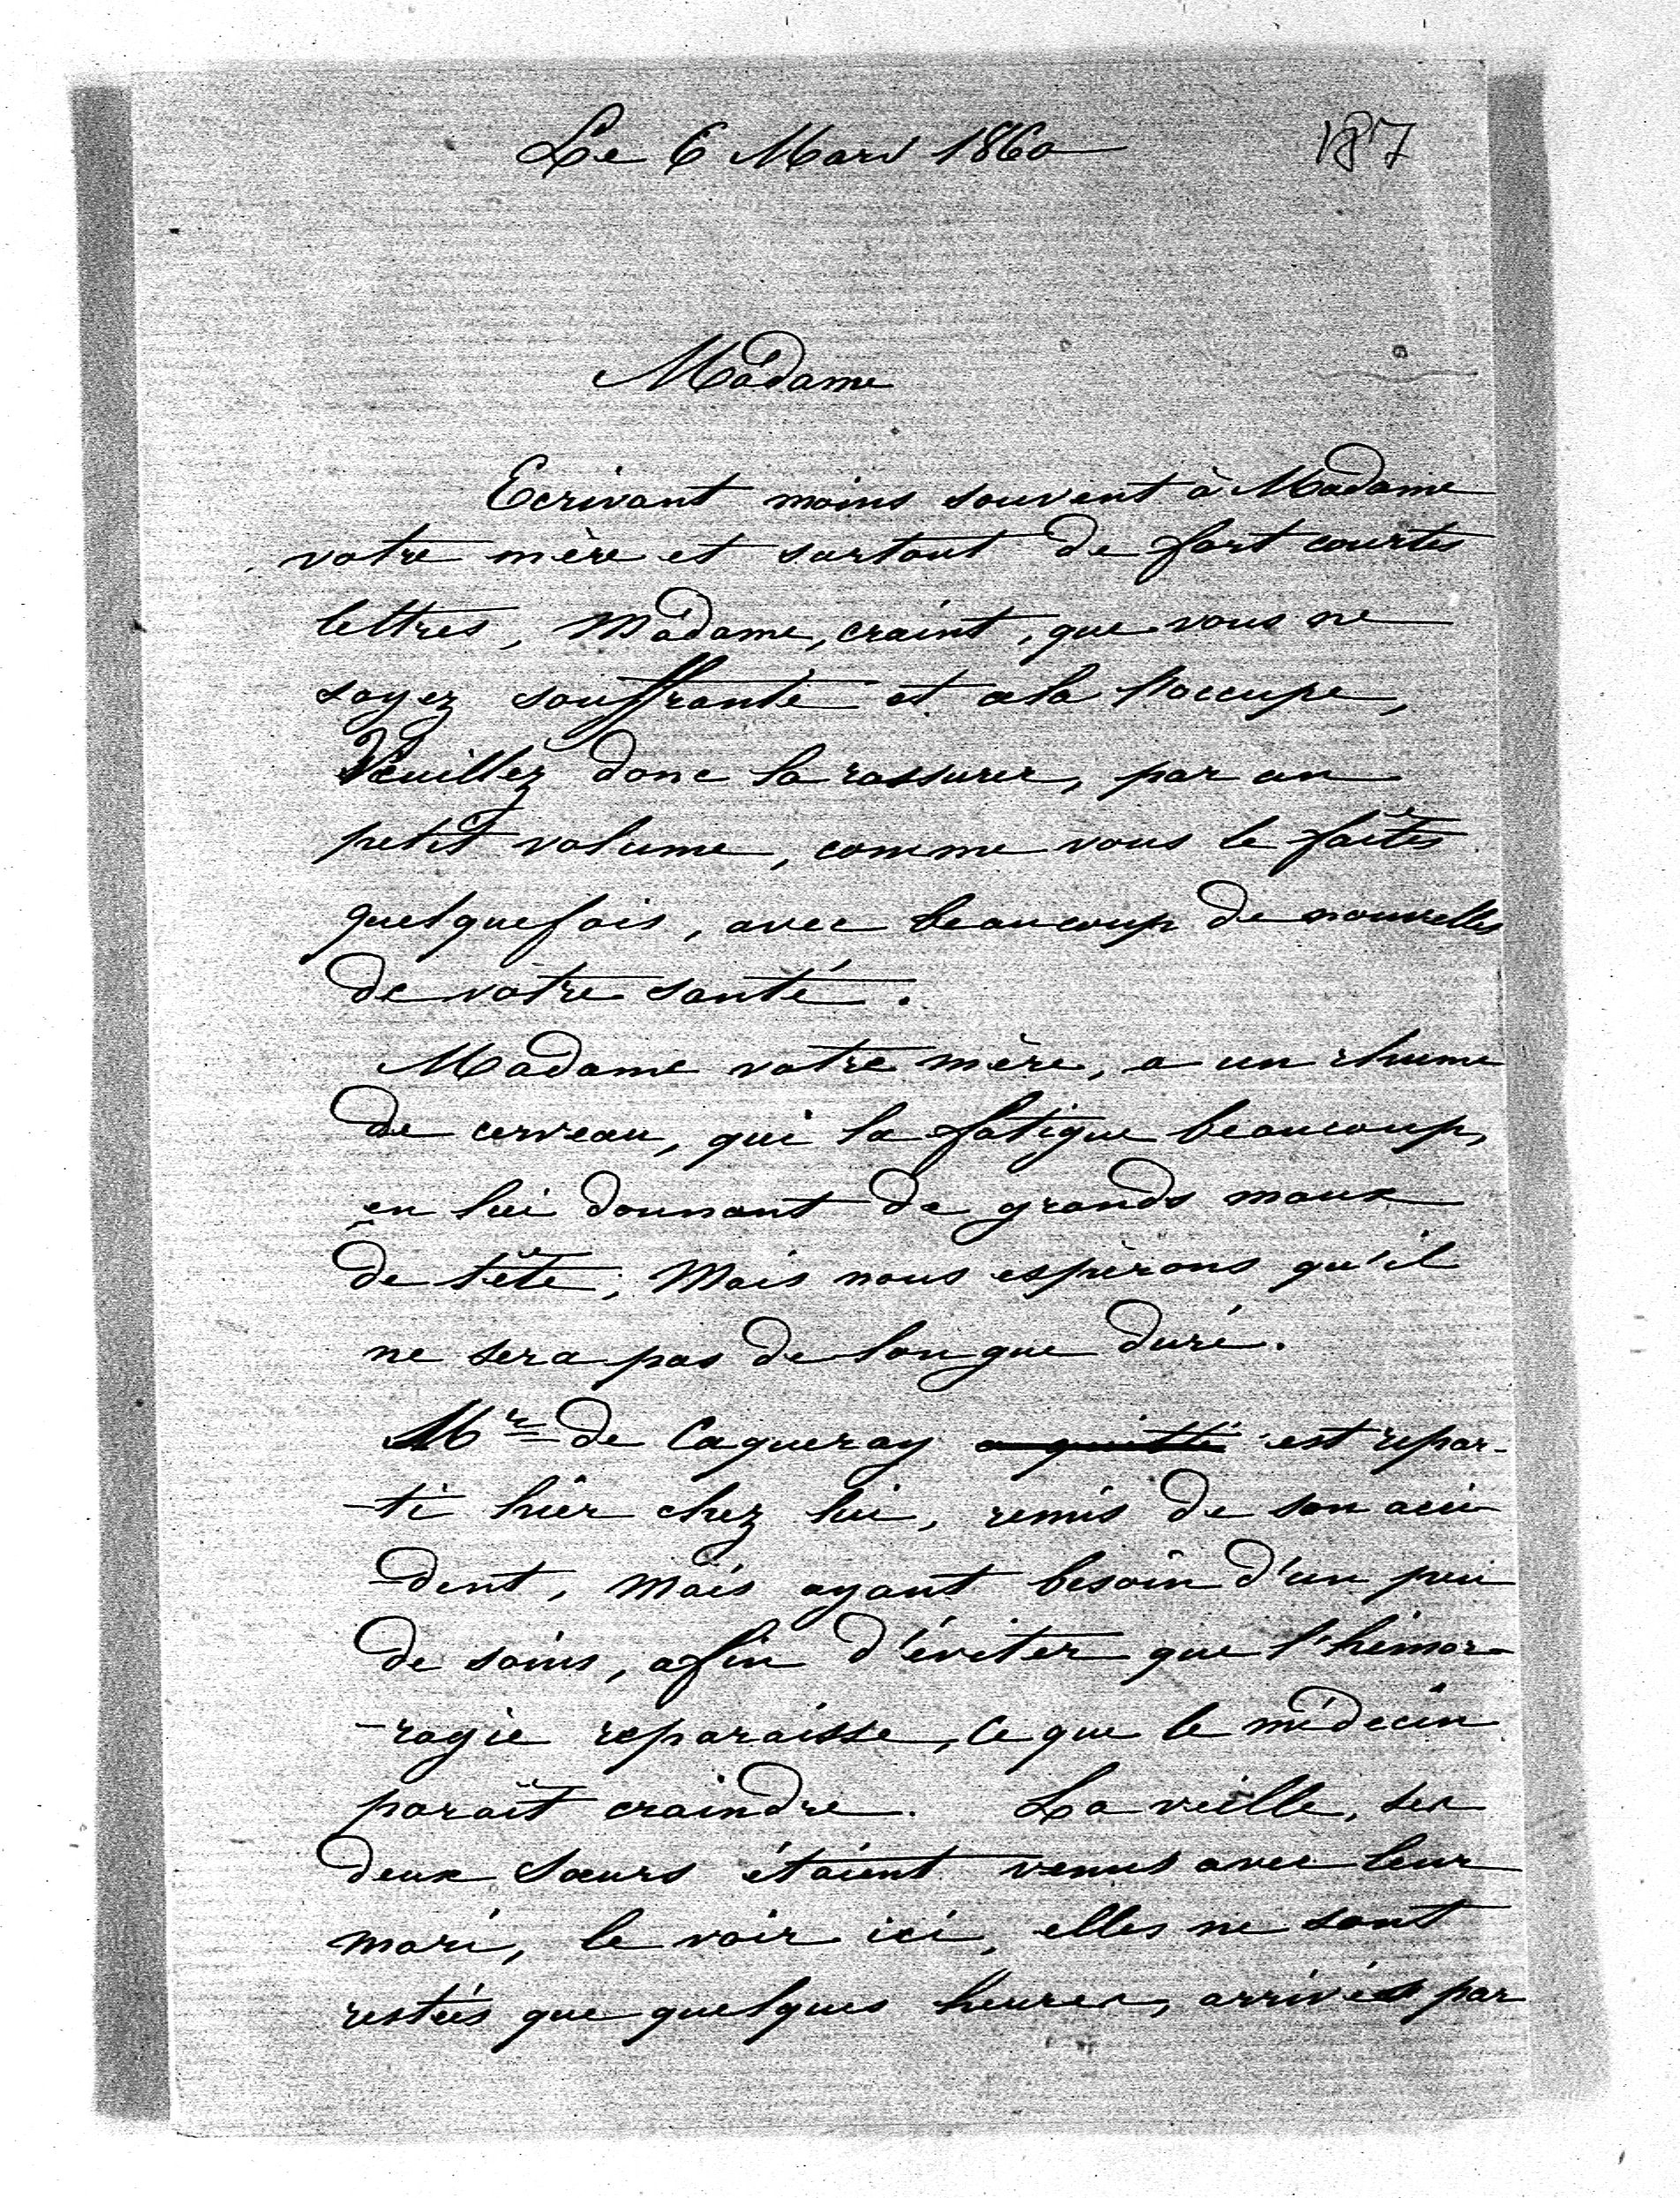 Le 6 Mars 1860
187
Madame
Ecrivant moins souvent à Madame
votre mère et surtout de fort courtes
lettres, Madame, craint, que vous ne
soyez souffrante et cela l'occupe,
Veuillez donc la rassurer, par un
petit volume, comme vous le faîtes
quelquefois, avec beaucoup de nouvelles
de votre santé.
Madame votre mère, a un rhume
de cerveau, qui la fatigue beaucoup,
en lui donnant de grands maux
de tête; Mais nous espérons qu'il
ne sera pas de longue duré.
Mr de Caqueray a quitté est repar-
-ti hier chez lui, remis de son acci
-dent, Mais ayant besoin d'un peu
de soins, afin d'éviter que l'hémor-
-ragie reparaisse, ce que le médecin
paraît craindre. La veille, ses
deux soeurs étaient venus avec leur
mari, le voir ici, elles ne sont
restées que quelques heures, arrivés par